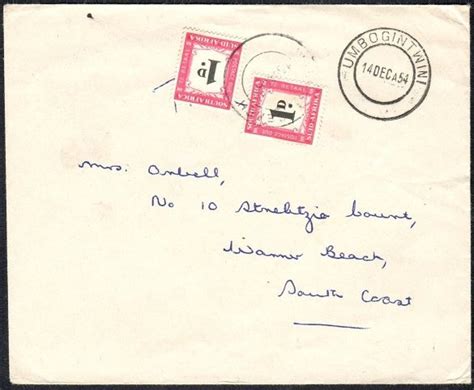 UMBOGINTWINI
14 DEC A 54
SOUTH AFRICA
1D.
SUID-AFRIKA
SOUTH AFRICA
1D.
SUID-AFRIKA
Mrs.
No 10 Strelitzia Court,
Warner Beach,
South Coast